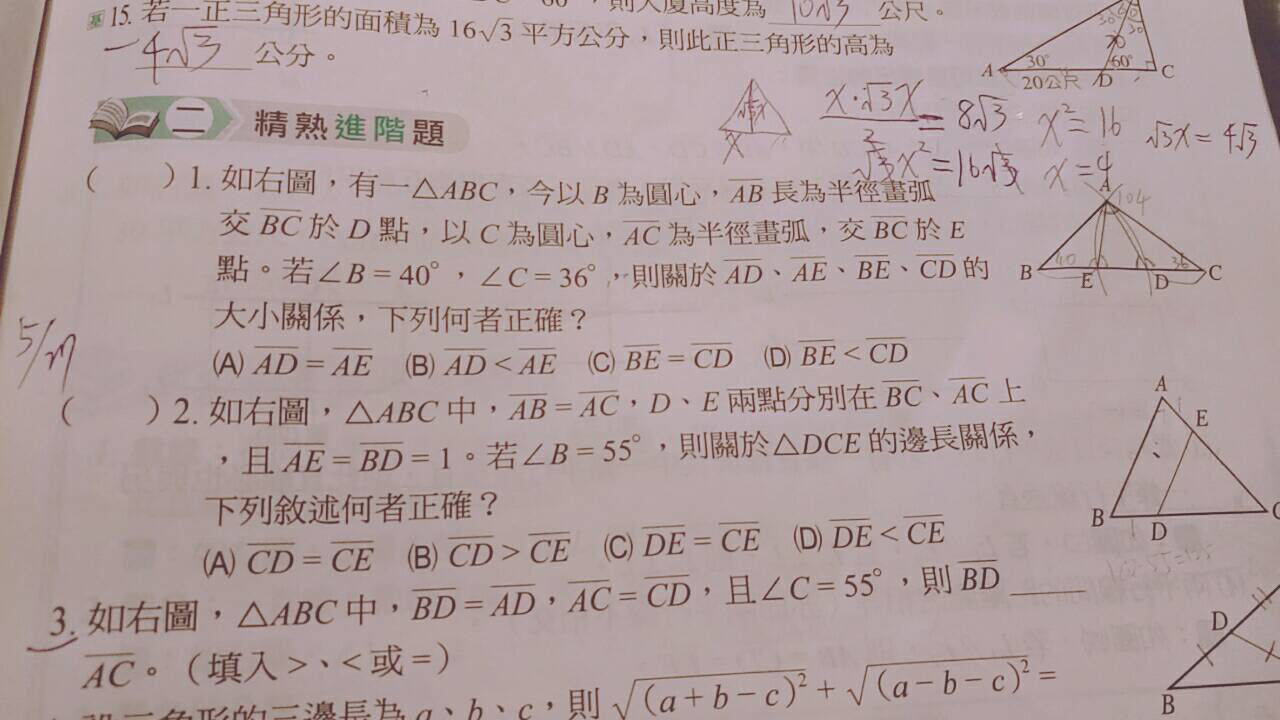 ，則大廈高度為 10√3 公尺。
基 15. 若一正三角形的面積為 16√3 平方公分，則此正三角形的高為
4√3 公分。
30° 60°
A 20公尺 D C
二 精熟進階題
x·√3x / 2 = 8√3 x² = 16 √3x = 4√3
√3x² = 16√3 x = 4
( ) 1. 如右圖，有一△ABC，今以 B 為圓心，AB 長為半徑畫弧
交 BC 於 D 點，以 C 為圓心，AC 為半徑畫弧，交 BC 於 E
點。若∠B = 40°，∠C = 36°，則關於 AD、AE、BE、CD 的
大小關係，下列何者正確？
(A) AD = AE (B) AD < AE (C) BE = CD (D) BE < CD
A 104
B 40 E D 36 C
5/17
( ) 2. 如右圖，△ABC 中，AB = AC，D、E 兩點分別在 BC、AC 上
，且 AE = BD = 1。若∠B = 55°，則關於△DCE 的邊長關係，
下列敘述何者正確？
(A) CD = CE (B) CD > CE (C) DE = CE (D) DE < CE
A 1
E
B D C
1
3. 如右圖，△ABC 中，BD = AD，AC = CD，且∠C = 55°，則 BD
AC。（填入 >、< 或 =）
D
B
三角形的三邊長為 a、b、c，則 √(a + b − c)² + √(a − b − c)² =